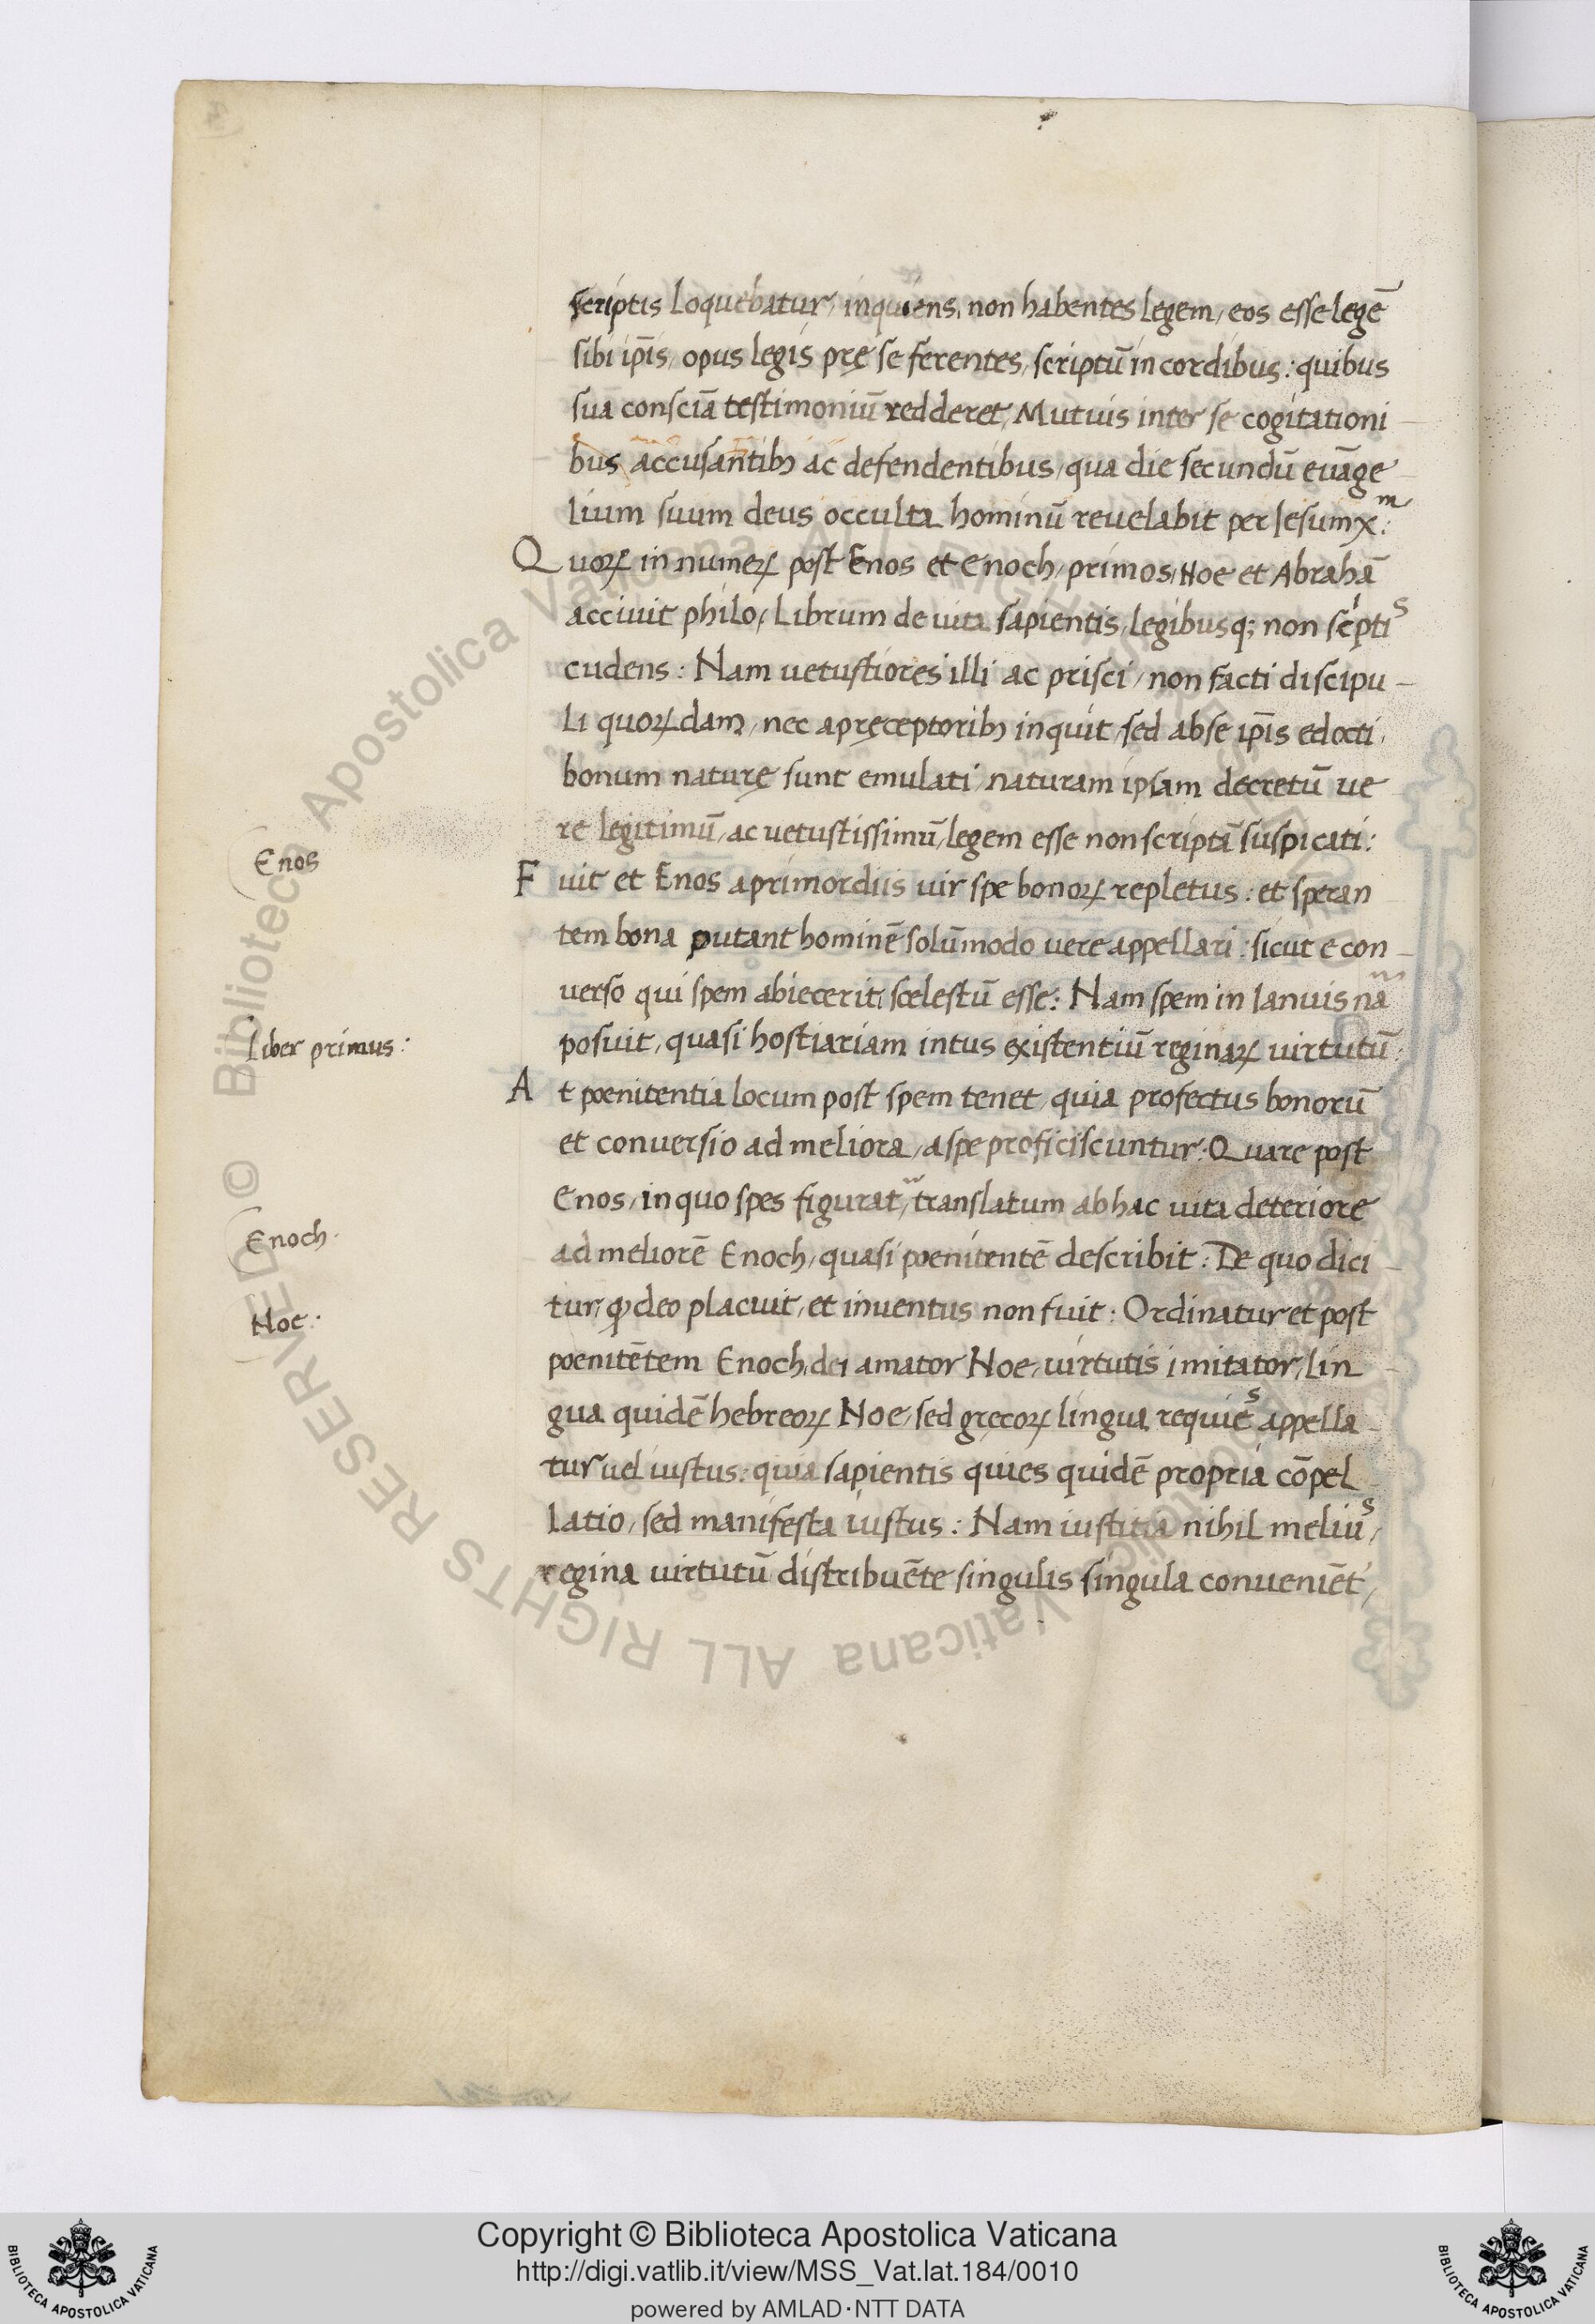 scriptis loquebatur, inquiens, non habentes legem, eos esse legē
sibi ip̄is, opus legis prę se ferentes, scriptū in cordibus: quibus
sua consciā testimoniū redderet, Mutuis inter se cogitationi
bus accusantibꝫ ac defendentibus, qua die secundū euāge
lium suum deus occulta hominū reuelabit per Iesum xᵐ:
Quoꝝ in numeꝝ post Enos et Enoch, primos, Noe et Abrahā
acciuit philo, Librum de uita sapientis, legibusq; non scͥptiˢ
cudens: Nam uetustiores illi ac prisci, non facti discipu
Enos
li quoꝝdam, nec a pręceptoribꝫ inquit, sed ab se ip̄is edocti,
bonum naturę sunt emulati, naturam ipsam decretū ue
re legitimū, ac uetustissimū, legem esse non scriptā suspicati:
Fuit et Enos a primordiis uir spe bonoꝝ repletus: et speran
tem bona putant hominē solūmodo uere appellari: sicut e con
uerso qui spem abiecerit, scelestū esse: Nam spem in Ianuis nā
Liber primus:
posuit, quasi hostiariam intus existentiū reginaꝝ uirtutū:
At poenitentia locum post spem tenet, quia profectus bonorū
et conuersio ad meliora, a spe proficiscuntur: Quare post
Enos, in quo spes figurat, translatum ab hac uita deteriore
Enoch.
ad meliorē Enoch, quasi poenitentē describit: De quo dici
tur, ꝙ deo placuit, et inuentus non fuit: Ordinatur et post
Noe:
poenitētem Enoch, dei amator Noe, uirtutis imitator, lin
gua quidē hebreoꝝ Noe, sed gręcoꝝ lingua requieˢ appella
tur uel iustus: quia sapientis quies quidē propria cōpel
latio, sed manifesta iustus: Nam iustitia nihil meliuˢ,
regina uirtutū distribuēte singulis singula conueniēt,
Copyright © Biblioteca Apostolica Vaticana
http://digi.vatlib.it/view/MSS_Vat.lat.184/0010
powered by AMLAD·NTT DATA
BIBLIOTECA APOSTOLICA VATICANA
BIBLIOTECA APOSTOLICA VATICANA
© Biblioteca Apostolica Vaticana ALL RIGHTS RESERVED